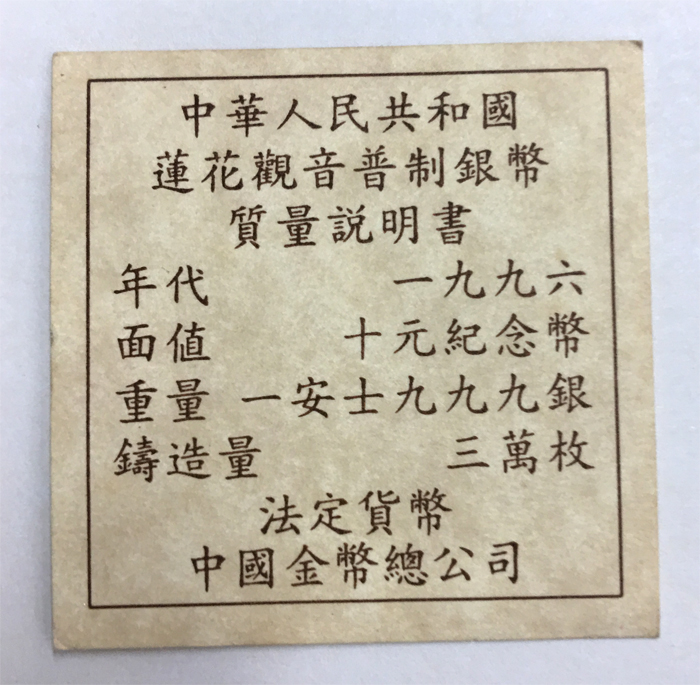 中華人民共和國
蓮花觀音普制銀幣
質量説明書
年代 一九九六
面值 十元紀念幣
重量 一安士九九九銀
鑄造量 三萬枚
法定貨幣
中國金幣總公司